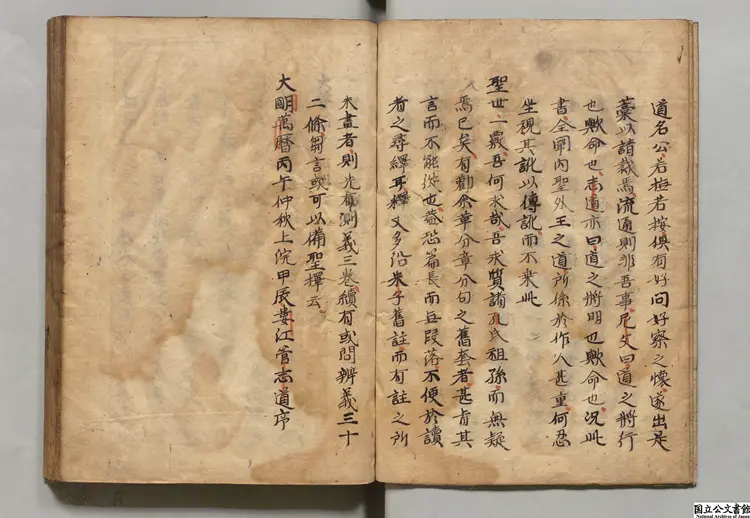 道名公若撫若按俱有好問好察之懷遂出是
藁以請裁焉流通則非吾事尼父曰道之將行
也歟命也志道亦曰道之將明也歟命也況此
書全闡內聖外王之道所係於作人甚重何忍
坐視其訛以傳訛而不來此
聖世一覈吾何求哉吾求質諸孔氏祖孫而無疑
焉已矣有勸余章分章分句之舊套者甚旨其
言而不能從也蓋恐篇長而無段落不便於讀
者之尋繹耳釋文多沿朱子舊註而有註之所
未盡者則先有測義三卷續有或問辨義三十
二條芻言或可以備聖擇云
大明萬曆丙午仲秋上浣甲辰婁江管志道序
国立公文書館
National Archives of Japan